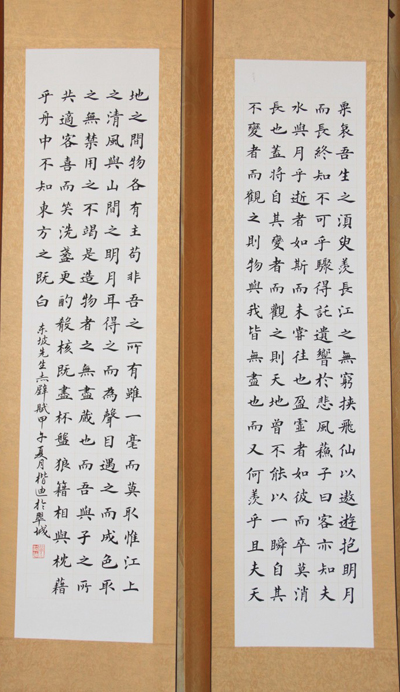 粟哀吾生之須臾羨長江之無窮挾飛仙以遨遊抱明月
而長終知不可乎驟得託遺響於悲風蘇子曰客亦知夫
水與月乎逝者如斯而未嘗往也盈虛者如彼而卒莫消
長也蓋將自其變者而觀之則天地曾不能以一瞬自其
不變者而觀之則物與我皆無盡也而又何羨乎且夫天
地之間物各有主苟非吾之所有雖一毫而莫取惟江上
之清風與山間之明月耳得之而為聲目遇之而成色取
之無禁用之不竭是造物者之無盡藏也而吾與子之所
共適客喜而笑洗盞更酌殽核既盡杯盤狼籍相與枕藉
乎舟中不知東方之既白 东坡先生赤壁賦甲子夏月楷迪於翠城